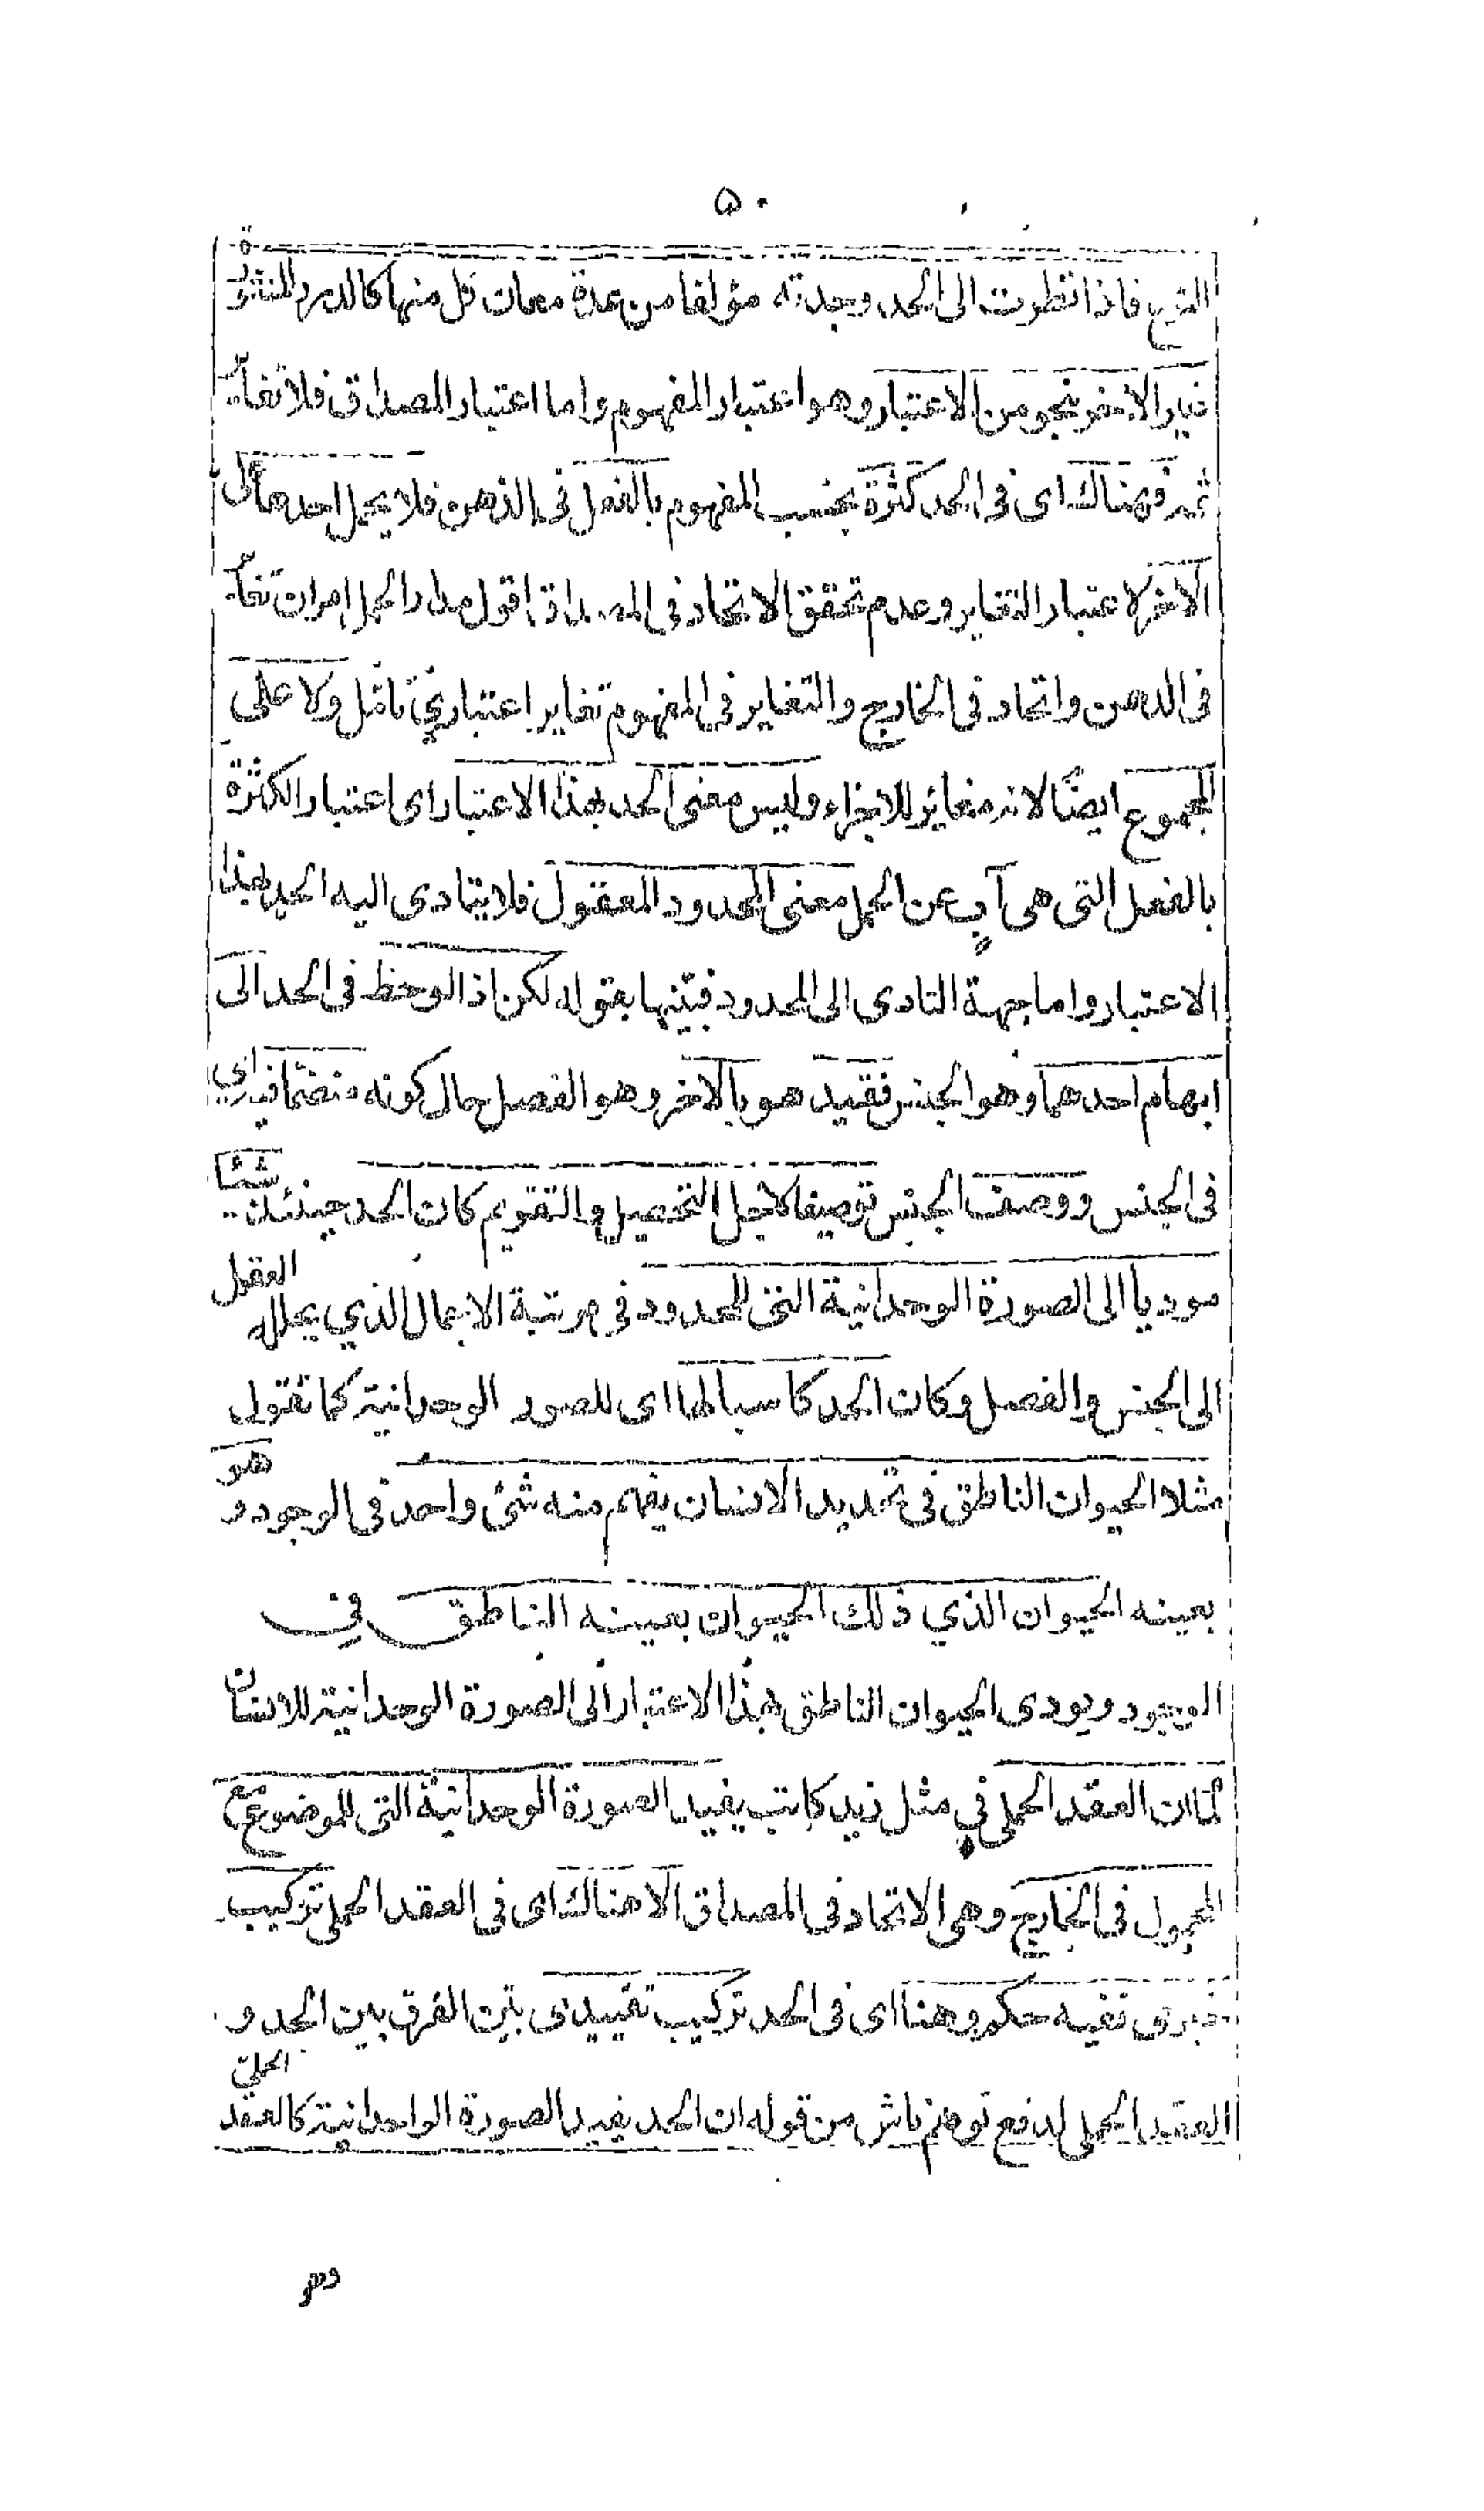 ۵۰
فاذا نظرت الى الحد وجدته مؤلفا من عدة معان كل منها كالدرهم المنثورة
غير الاخر بنحو من الاعتبار وهو اعتبار المفهوم واما اعتبار المصداق فلا تغاير
ثمه فهناك اى فى الحد كثرة بحسب المفهوم بالفعل فى الذهن فلا يحمل احدهما على
الاخر لاعتبار التغاير وعدم تحقق الاتحاد فى المصداق اقول مدار الحمل امران تغاير
فى الذهن واتحاد فى الخارج والتغاير فى المفهوم تغاير اعتباري تامّل ولا على
المجموع ايضًا لانه مغاير للاجزاء وليس معنى الحد بهذا الاعتبار اى اعتبار الكثرة
بالفعل التى هى آبٍ عن الحمل معنى المحدود المعقول فلا يتادى اليه الحد بهذا
الاعتبار واما جهة التادى الى المحدود فبيّنها بقوله لكن اذا لوحظ فى الحد الى
ابهام احدهما وهو الجنس فقيد هو بالاخر وهو الفصل حال كونه منضمًا فيه اي
فى الجنس ووصف الجنس توصيفا لاجل التحصيل والتقويم كان الحد حينئذ شيئا
موديا الى الصورة الوحدانية التى للمحدود فى مرتبة الاجمال الذي يحلله العقل
الى الجنس والفصل وكان الحد كاسبا لها اى للصور الوحدانية كما تقول
مثلا الحيوان الناطق فى تحديد الانسان يفهم منه شئ واحد فى الوجود و هو
بعينه الحيوان الذي ذلك الحيوان بعينه الناطق في
الوجود ويودى الحيوان الناطق بهذا الاعتبار الى الصورة الوحدانية للانسان
كما ان العقد الحملى في مثل زيد كاتب يفيد الصورة الوحدانية التى للموضوع مع
المحمول فى الخارج وهى الاتحاد فى المصداق الا هناك اى فى العقد الحملى تركيب
خبرى ففيه حكم وهنا اى فى الحد تركيب تقييدى بيّن الفرق بين الحد و
العقد الحملى لدفع توهم ناش من قوله ان الحد يفيد الصورة الواحدانية كالعقد الحملى